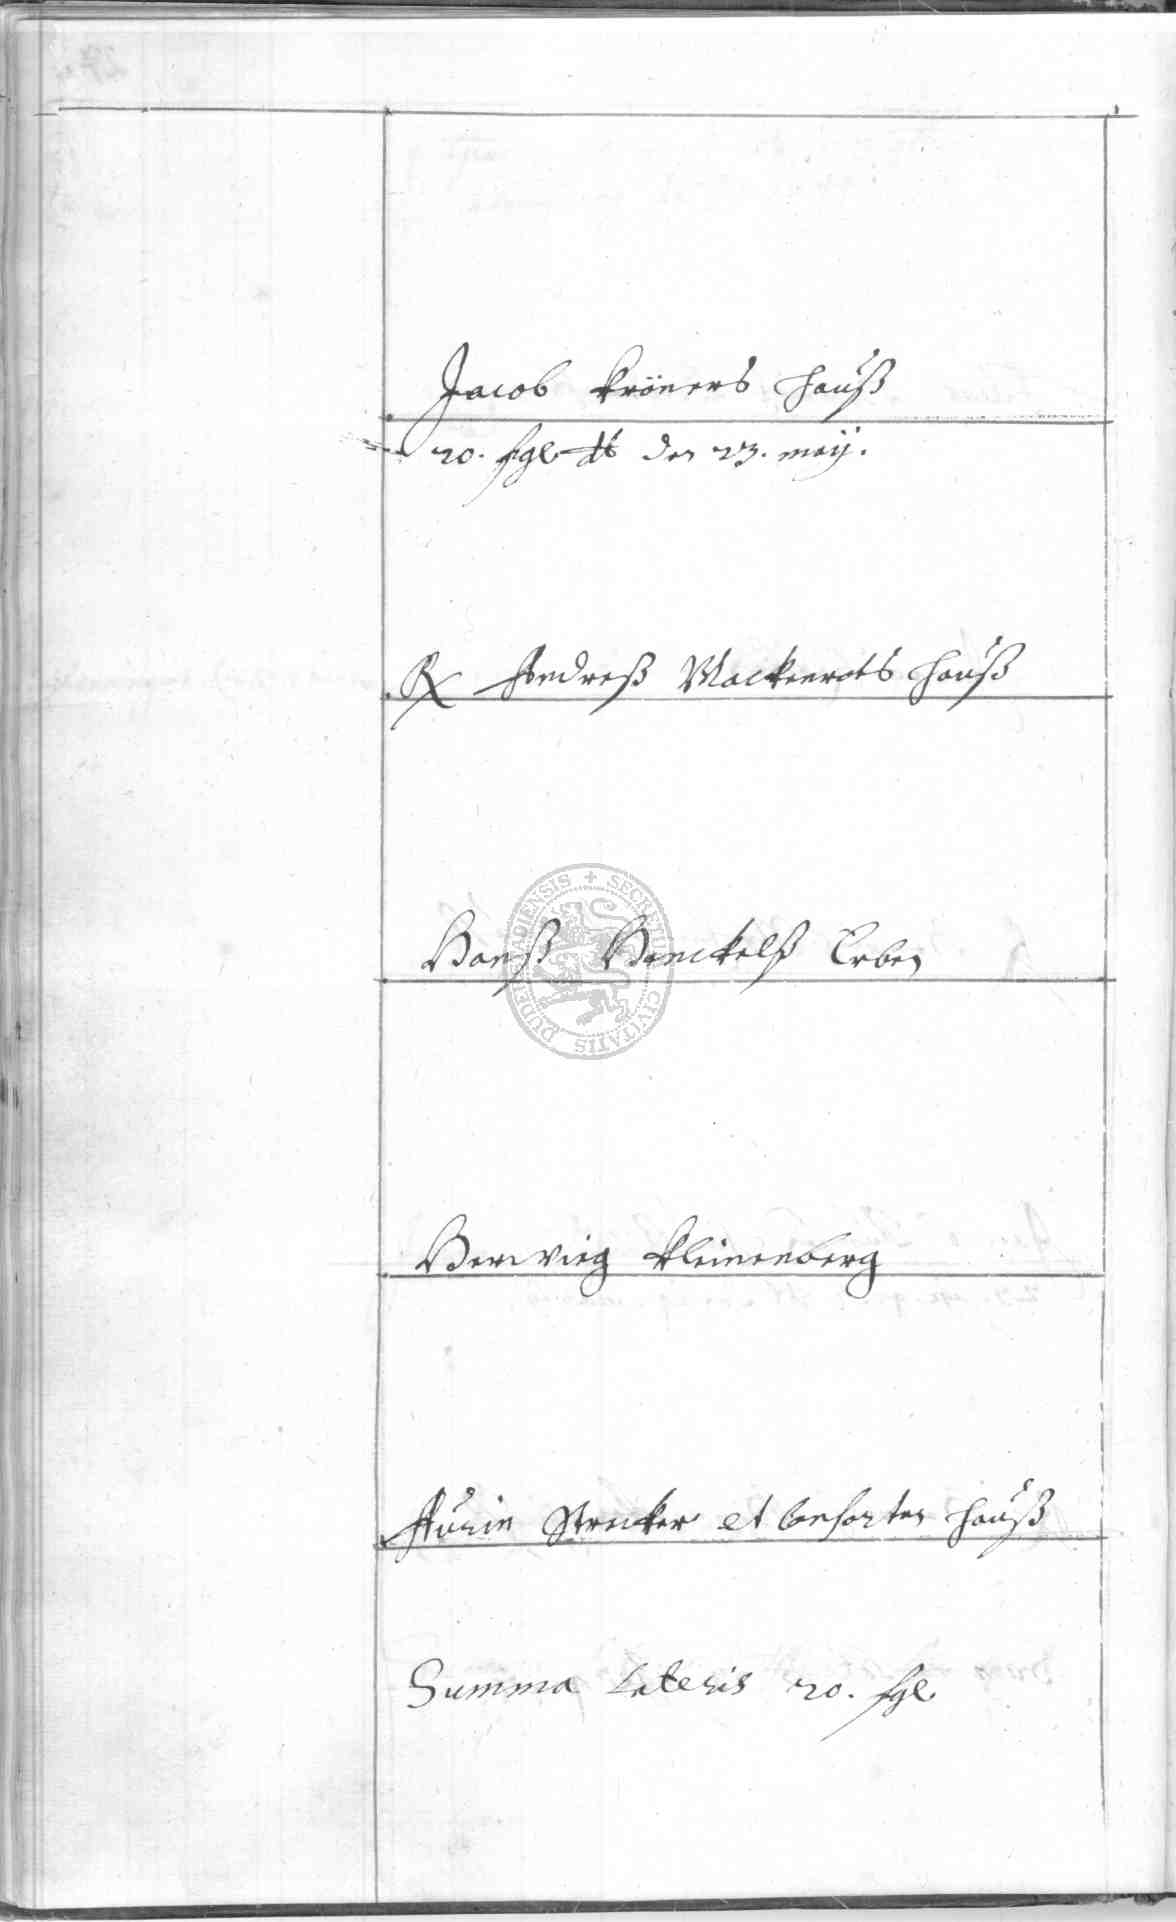 Jacob Kröners hauß
20. sgl dt den 23. maij.
Rx Andreß Mackenrots hauß
Hanß Henckelß Erben
Herwieg Kleinenberg
Strecker et consorten hauß
Summa Lateris 20. sgl
SECRETUM CIVITATIS DUDERSTADIENSIS